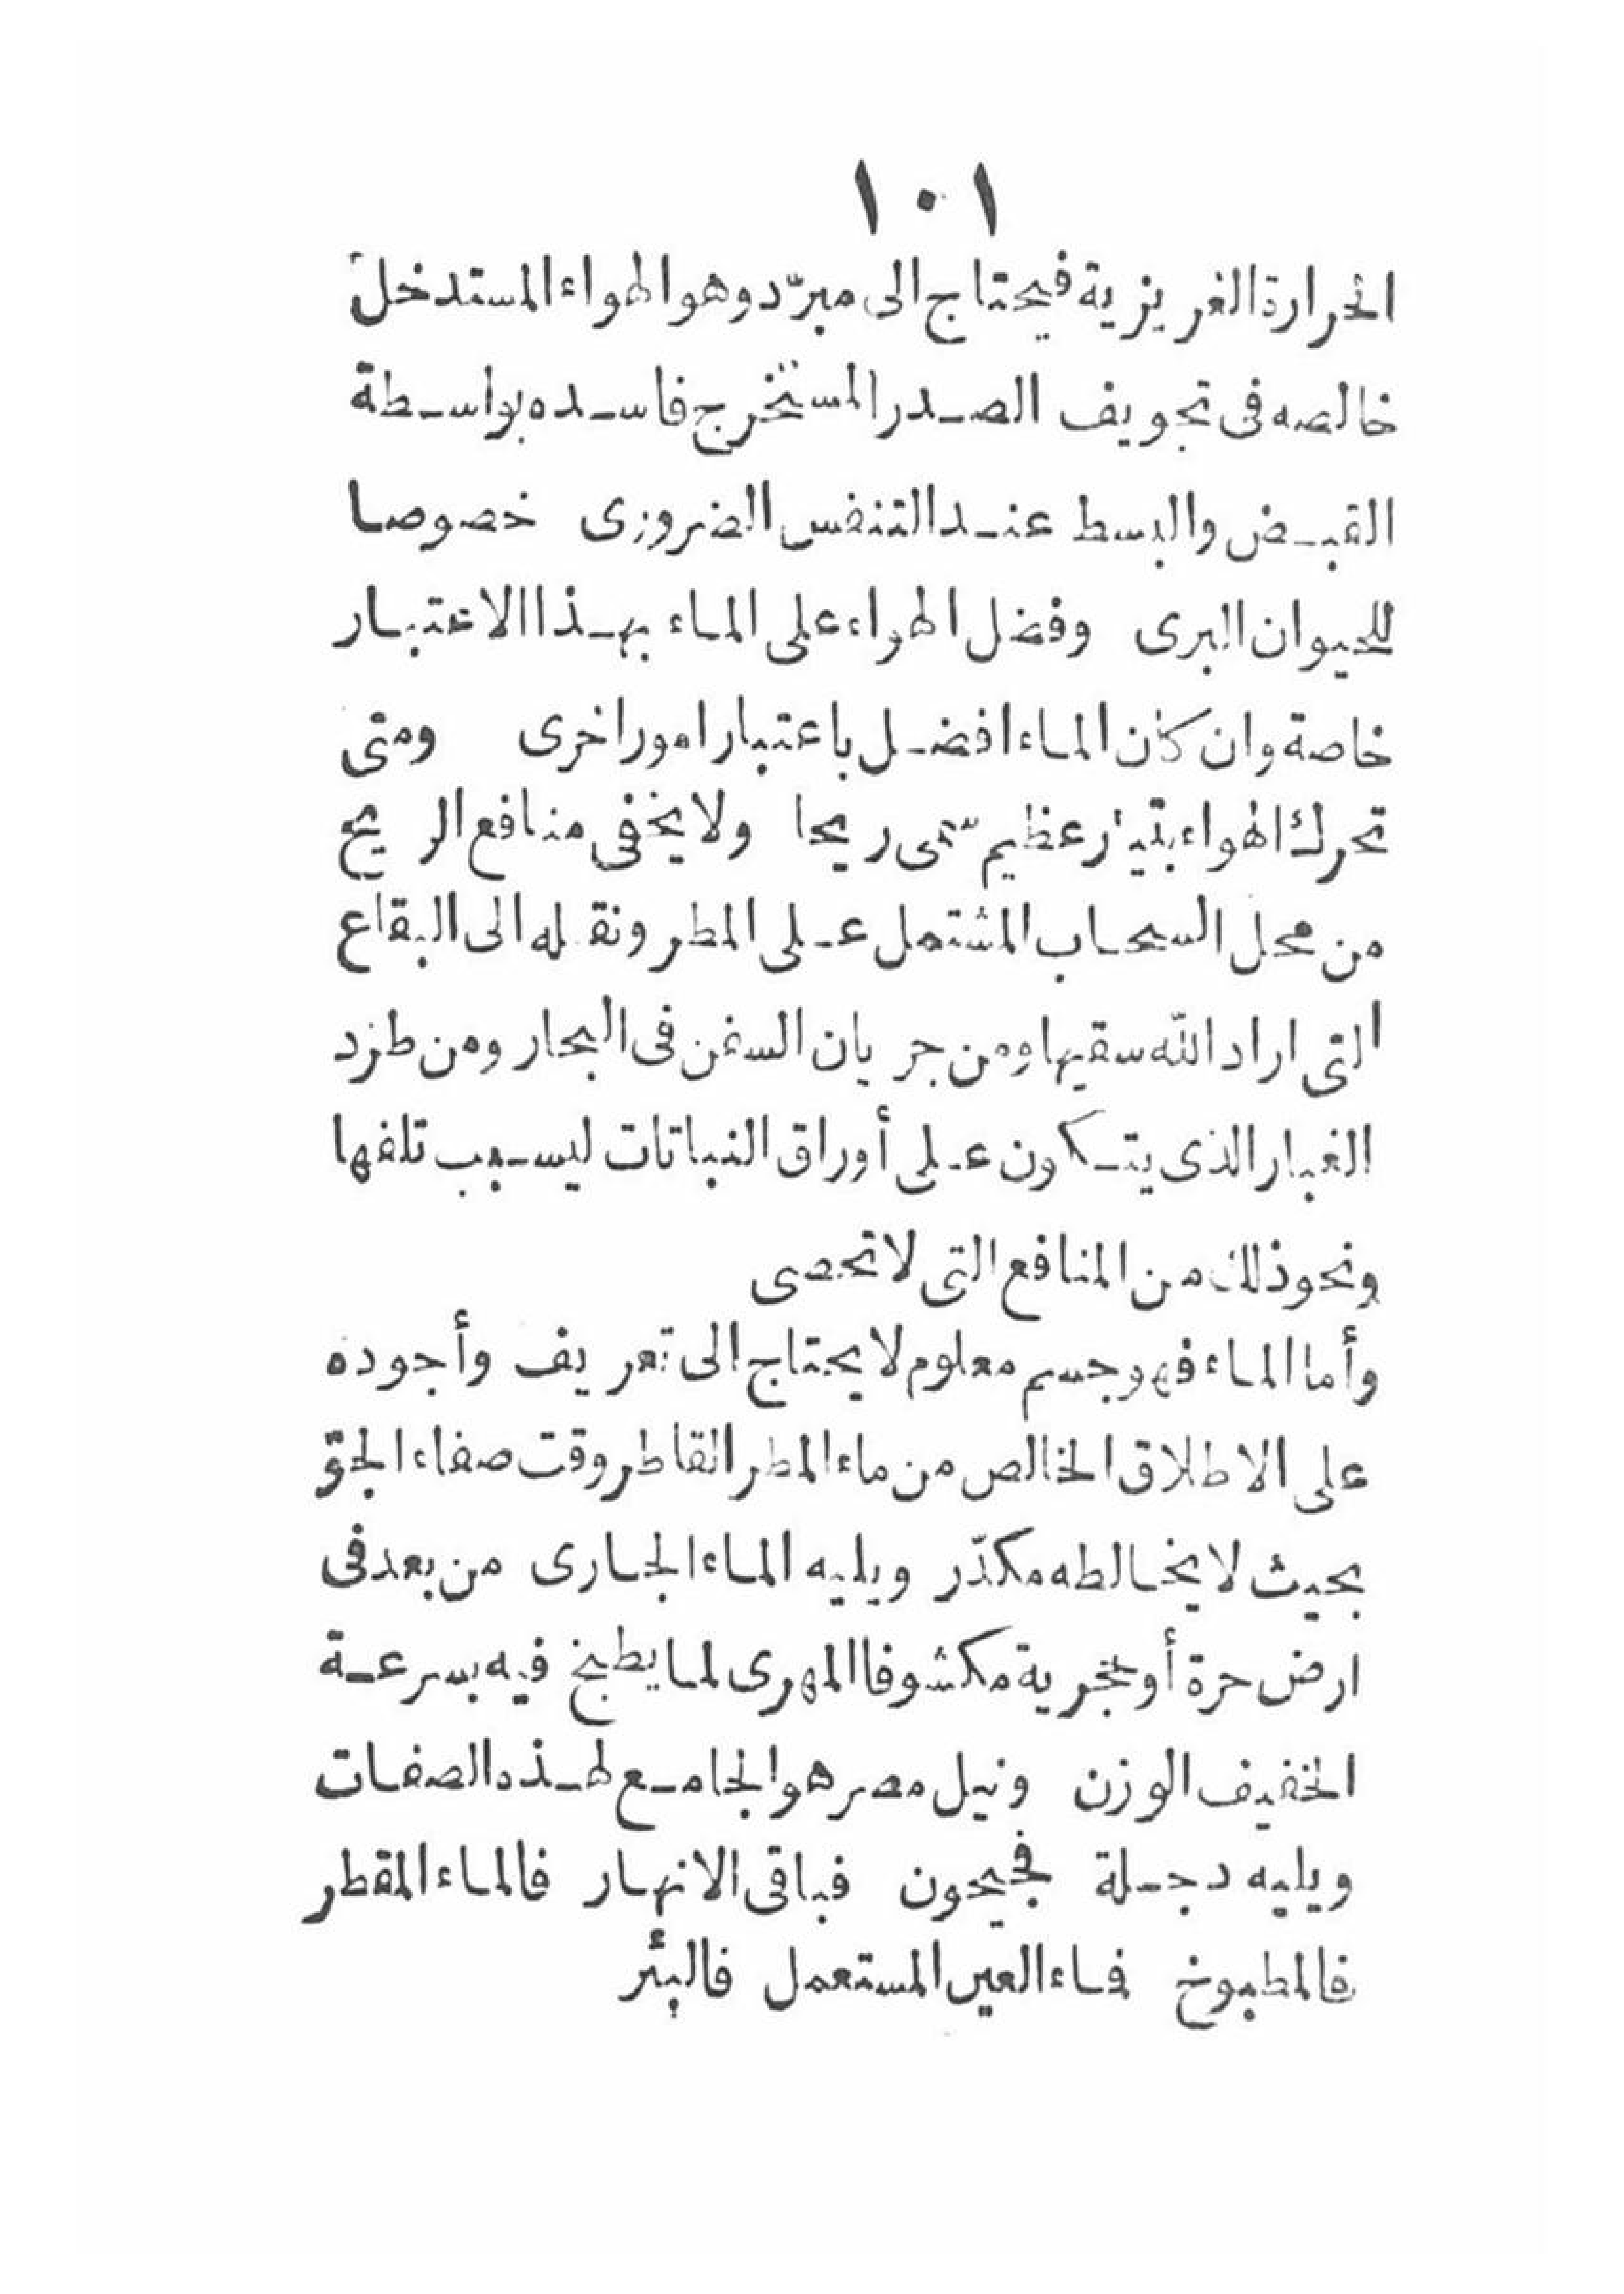 ١٠١
الحرارة الغريزية فيحتاج الى مبرّد وهو الهواء المستدخل
خالصه فى تجويف الصدر المستخرج فاسده بواسطة
القبض والبسط عند التنفس الضرورى خصوصا
للحيوان البرى وفضل الهواء على الماء بهذا الاعتبار
خاصة وان كان الماء افضل باعتبار امور اخرى ومتى
تحرك الهواء بتيار عظيم سمى ريحا ولا يخفى منافع الريح
من محل السحاب المشتمل على المطر ونقله الى البقاع
التى اراد الله سقيها ومن جريان السفن فى البحار ومن طرد
الغبار الذى يتكون على أوراق النباتات ليسبب تلفها
ونحو ذلك من المنافع التى لا تحصى
وأما الماء فهو جسم معلوم لا يحتاج الى تعريف وأجوده
على الاطلاق الخالص من ماء المطر القاطر وقت صفاء الجوّ
بحيث لا يخالطه مكدّر ويليه الماء الجارى من بعد فى
ارض حرة أو مكشوفا المهرى لما يطبخ فيه بسرعة
الخفيف الوزن ونيل مصر هو الجامع لهذه الصفات
ويليه دجلة فجيحون فباقى الانهار فالماء المقطر
فالمطبوخ فماء العين المستعمل فالبئر